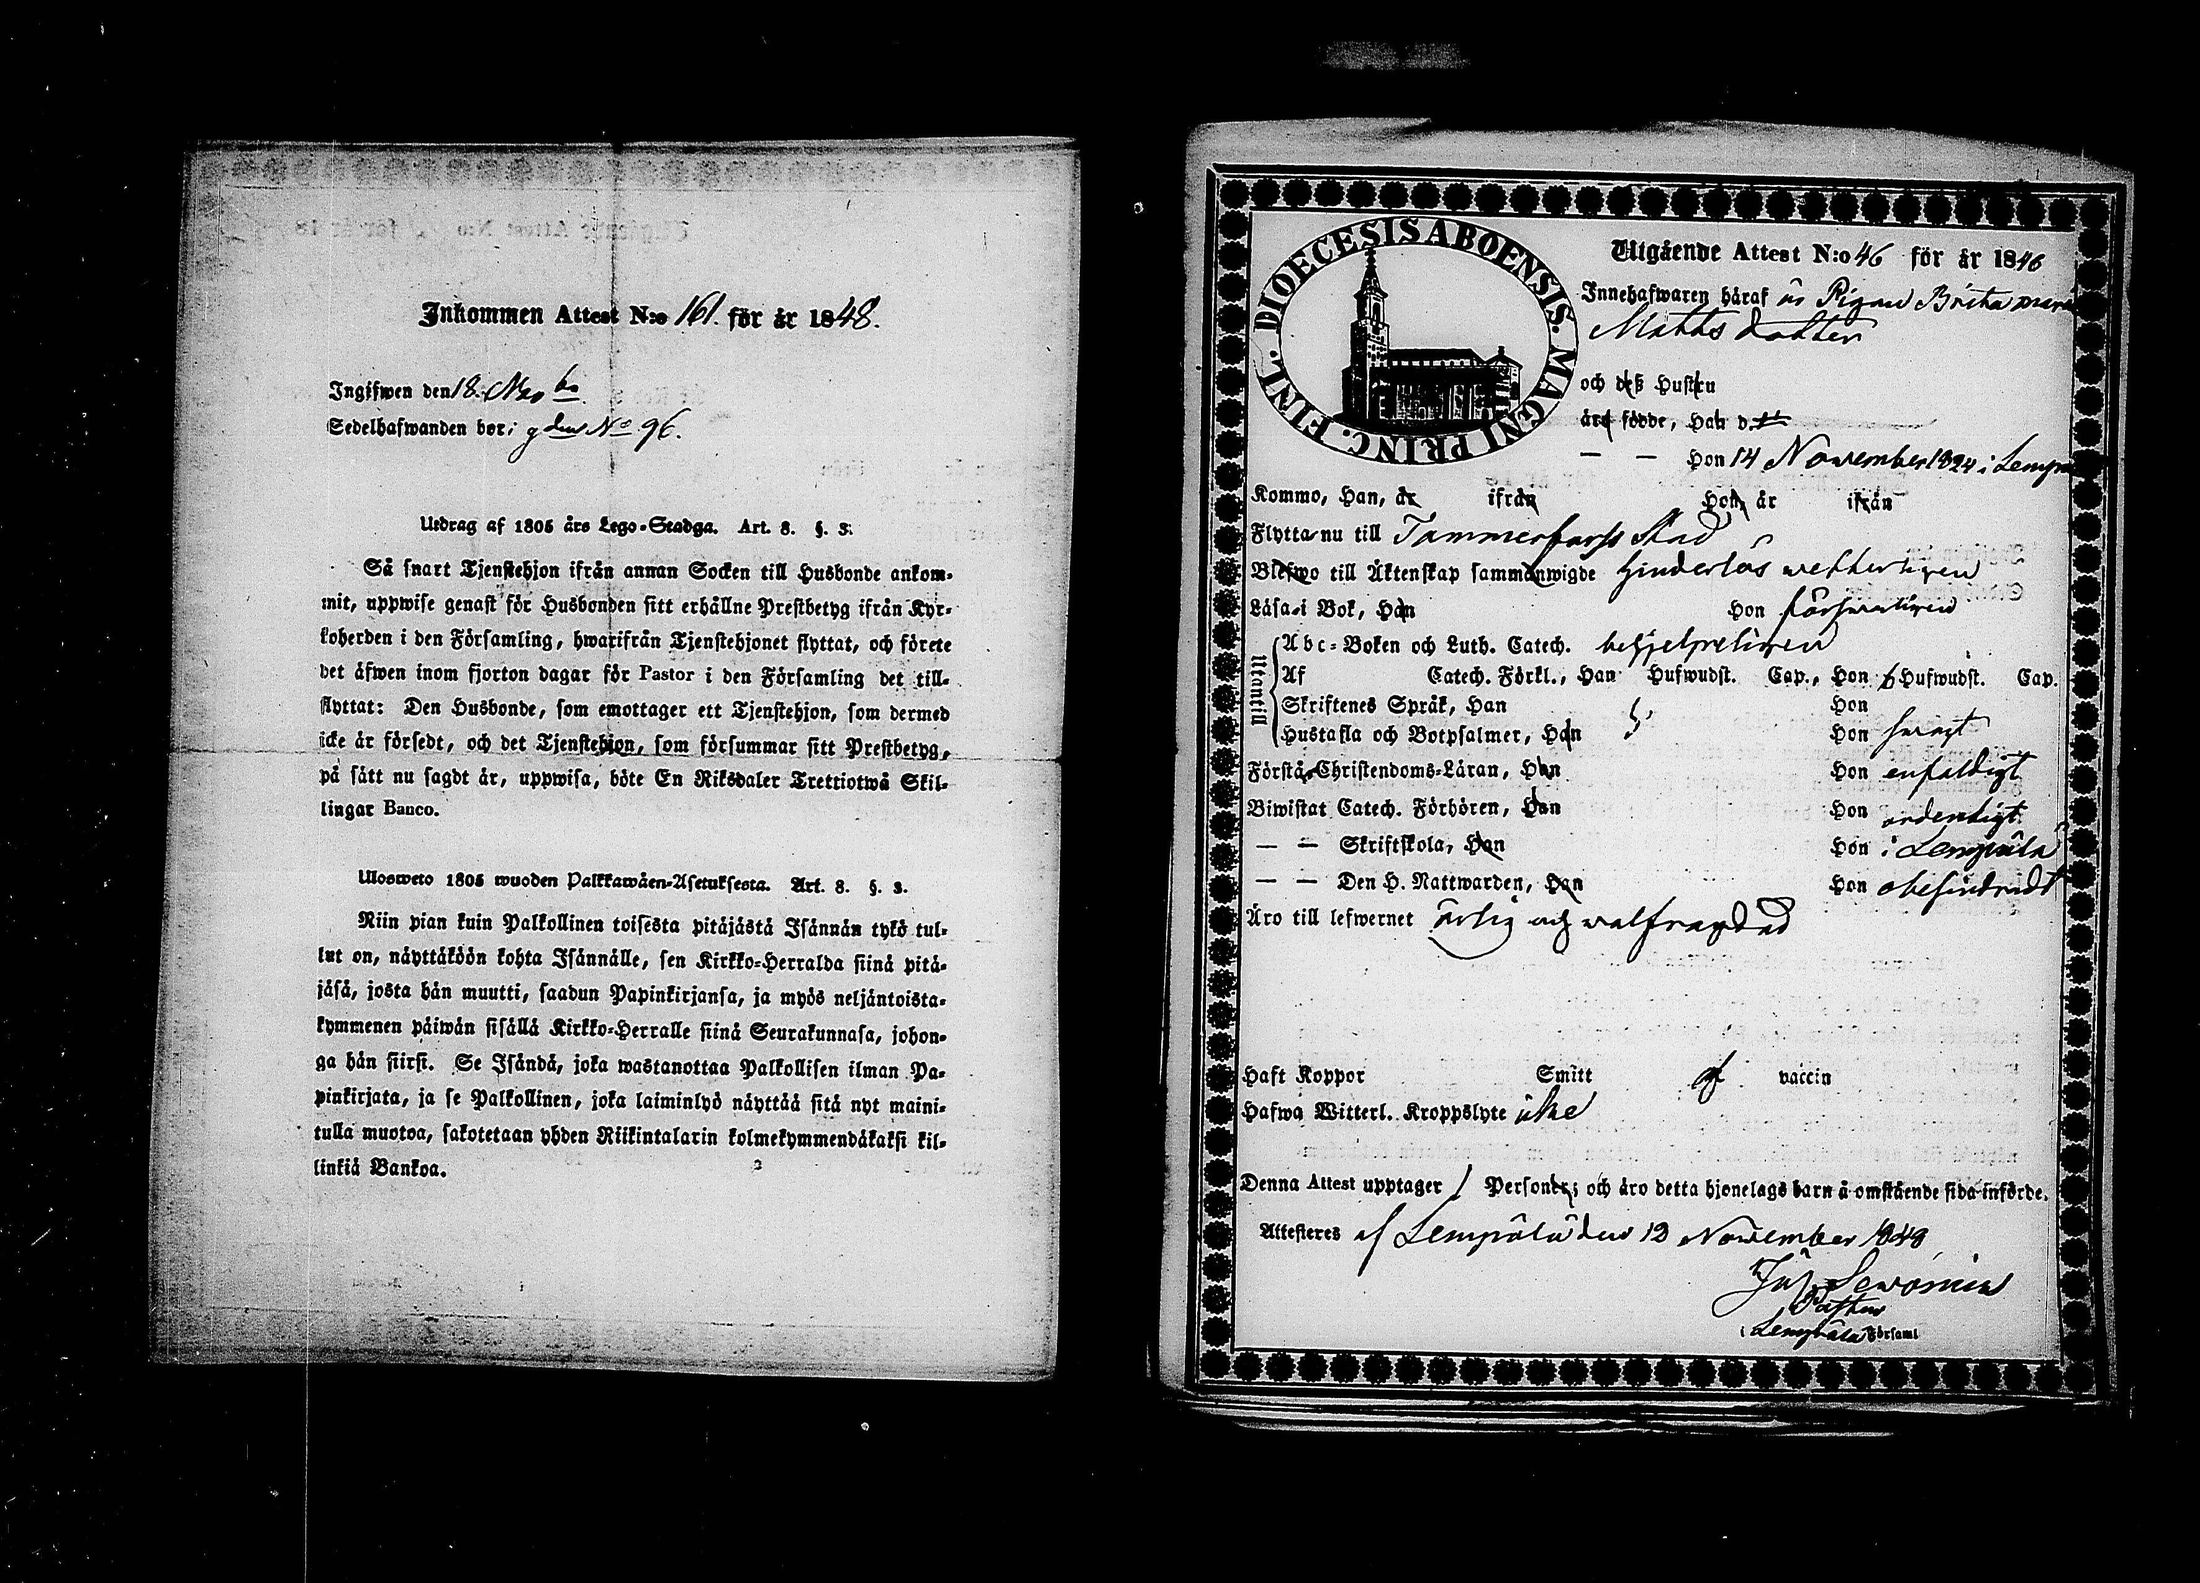 Inkommen Attest N:o 161. för år 1848.
Ingifwen den 18. Nov
Sedelhafwanden bor i gden No 96.
Utdrag af 1805 års Lego-Stadga. Art. 8. §. 3.
Så snart Tjenstehjon ifrån annan Socken till Husbonde ankom-
mit, uppwise genast för Husbonden sitt erhållne Prestbetyg ifrån Kyr-
koherden i den Församling, hwarifrån Tjenstehjonet flyttat, och förete
det äfwen inom fjorton dagar för Pastor i den Församling det till-
flyttat: Den Husbonde, som emottager ett Tjenstehjon, som dermed
icke är försedt, och det Tjenstehjon, som försummar sitt Prestbetyg,
på sätt nu sagdt är, uppwisa, böte En Riksdaler Trettiotwå Skil-
lingar Banco.
Ulosweto 1805 wuoden Palkkawäen-Asetuksesta. Art. 8. §. 3.
Niin pian kuin Palkollinen toisesta pitäjästä Isännän tykö tul-
lut on, näyttäköön kohta Isännälle, sen Kirkko-Herralda siinä pitä-
jäsä, josta hän muutti, saadun Papinkirjansa, ja myös neljäntoista-
kymmenen päiwän sisällä Kirkko-Herralle siinä Seurakunnasa, johon-
ga hän siirsi. Se Isändä, joka wastanottaa Palkollisen ilman Pa-
pinkirjata, ja se Palkollinen, joka laiminlyö näyttää sitä nyt maini-
tulla muotoa, sakotetaan yhden Riikintalarin kolmekymmendäkaksi kil-
linkiä Bankoa.
DIOECESIS ABOENSIS. MAGNI PRINC. FINL.
Utgående Attest N:o 46 för år 1846
Innehafwaren häraf är Pigan Brita Maria
Matts dotter
och deß Hustru
äro födde, Han d.
— — Hon 14 November 1824 i Lempä
Kommo, Han, år ifrån Hon, år ifrån
Flytta nu till Tammerforss Stad
Blefwo till Äktenskap sammanwigde hinderlös wetterligen
Läsa i Bok, Han Hon försvarligen
Utantill
Abc-Boken och Luth. Catech. behjelpeligen
Af Catech. Förkl., Han Hufwudst. Cap., Hon 6 Hufwudst. Cap.
Skriftenes Språk, Han Hon
Hustafla och Botpsalmer, Han Hon swagt
Förstå Christendoms-Läran, Han Hon enfaldigt
Biwistat Catech. Förhören, Han Hon ordentligt
— — Skriftskola, Han Hon i Lempäla
— — Den H. Nattwarden, Han Hon obehindradt
Äro till lefwernet ärlig och wälfrägdad
Haft Koppor Smitt af vaccin
Hafwa Witterl. Kroppslyte icke
Denna Attest upptager 1 Personer; och äro detta hjonelags barn å omstående sida införde.
Attesteres af Lempälä den 12 November 1848
Pastor
i Lempäla Församl